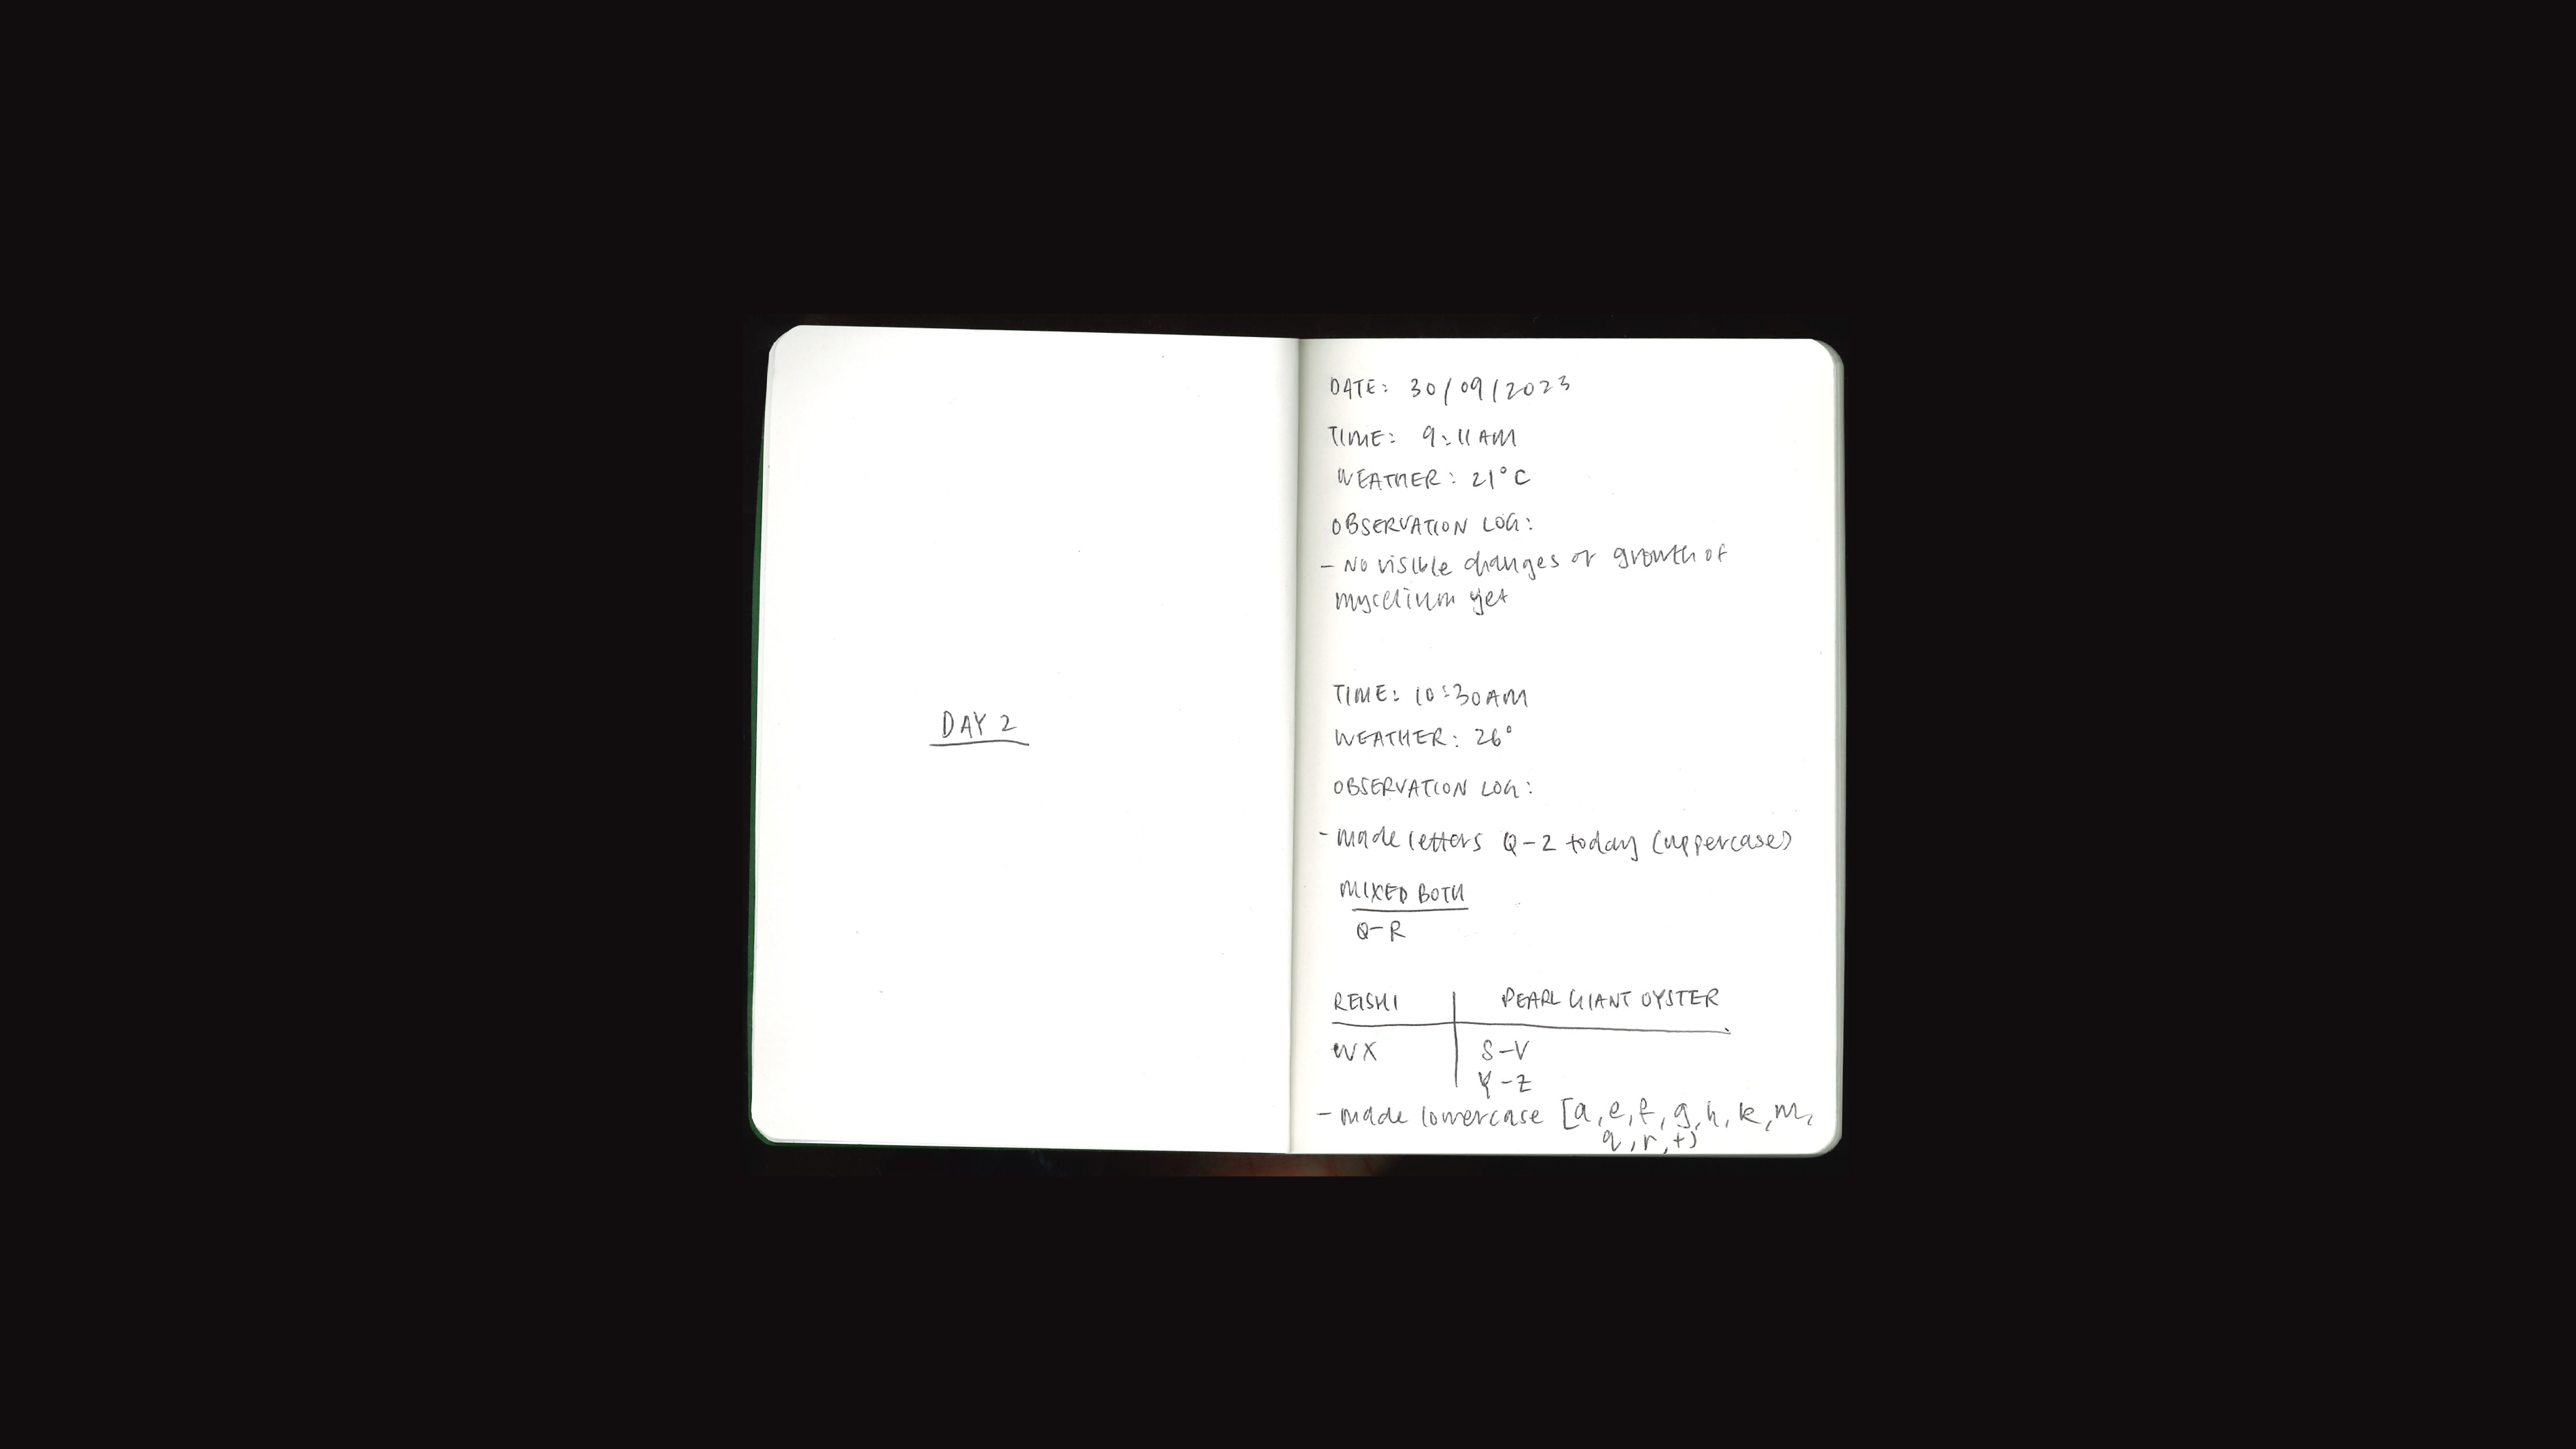 DAY 2
DATE: 30/09/2023
TIME: 9:11AM
WEATHER: 21°C
OBSERVATION LOG:
- No visible changes or growth of
mycelium yet
TIME: 10:30AM
WEATHER: 26°
OBSERVATION LOG:
- made letters Q-Z today (uppercase)
MIXED BOTH
Q-R
REISHI | PEARL GIANT OYSTER
WX | S-V
Y-Z
- made lowercase [a, e, f, g, h, k, m,
q, r, t)